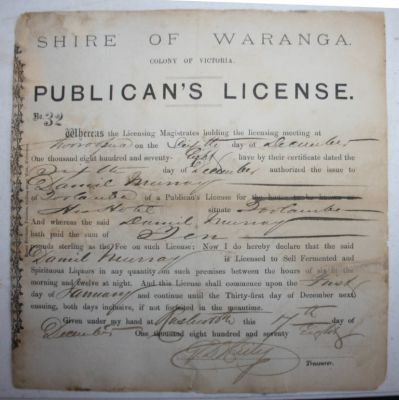 SHIRE OF WARANGA.
COLONY OF VICTORIA.
PUBLICAN'S LICENSE.
No. 32
Whereas the Licensing Magistrates holding the licensing meeting at
on the day of December
One thousand eight hundred and seventy-Eight have by their certificate dated the
day of December authorized the issue to
Daniel Murray
of Toolamba of a Publican's License for the house to be known as
Hotel situate Toolamba
And whereas the said Daniel Murray
hath paid the sum of Ten
pounds sterling as the Fee on such License; Now I do hereby declare that the said
Daniel Murray is Licensed to Sell Fermented and
Spirituous Liquors in any quantity on such premises between the hours of six in the
morning and twelve at night. And this License shall commence upon the First
day of January and continue until the Thirty-first day of December next
ensuing, both days inclusive, if not forfeited in the meantime.
Given under my hand at Rushworth this 17th
December One thousand eight hundred and seventy Eight
Treasurer.